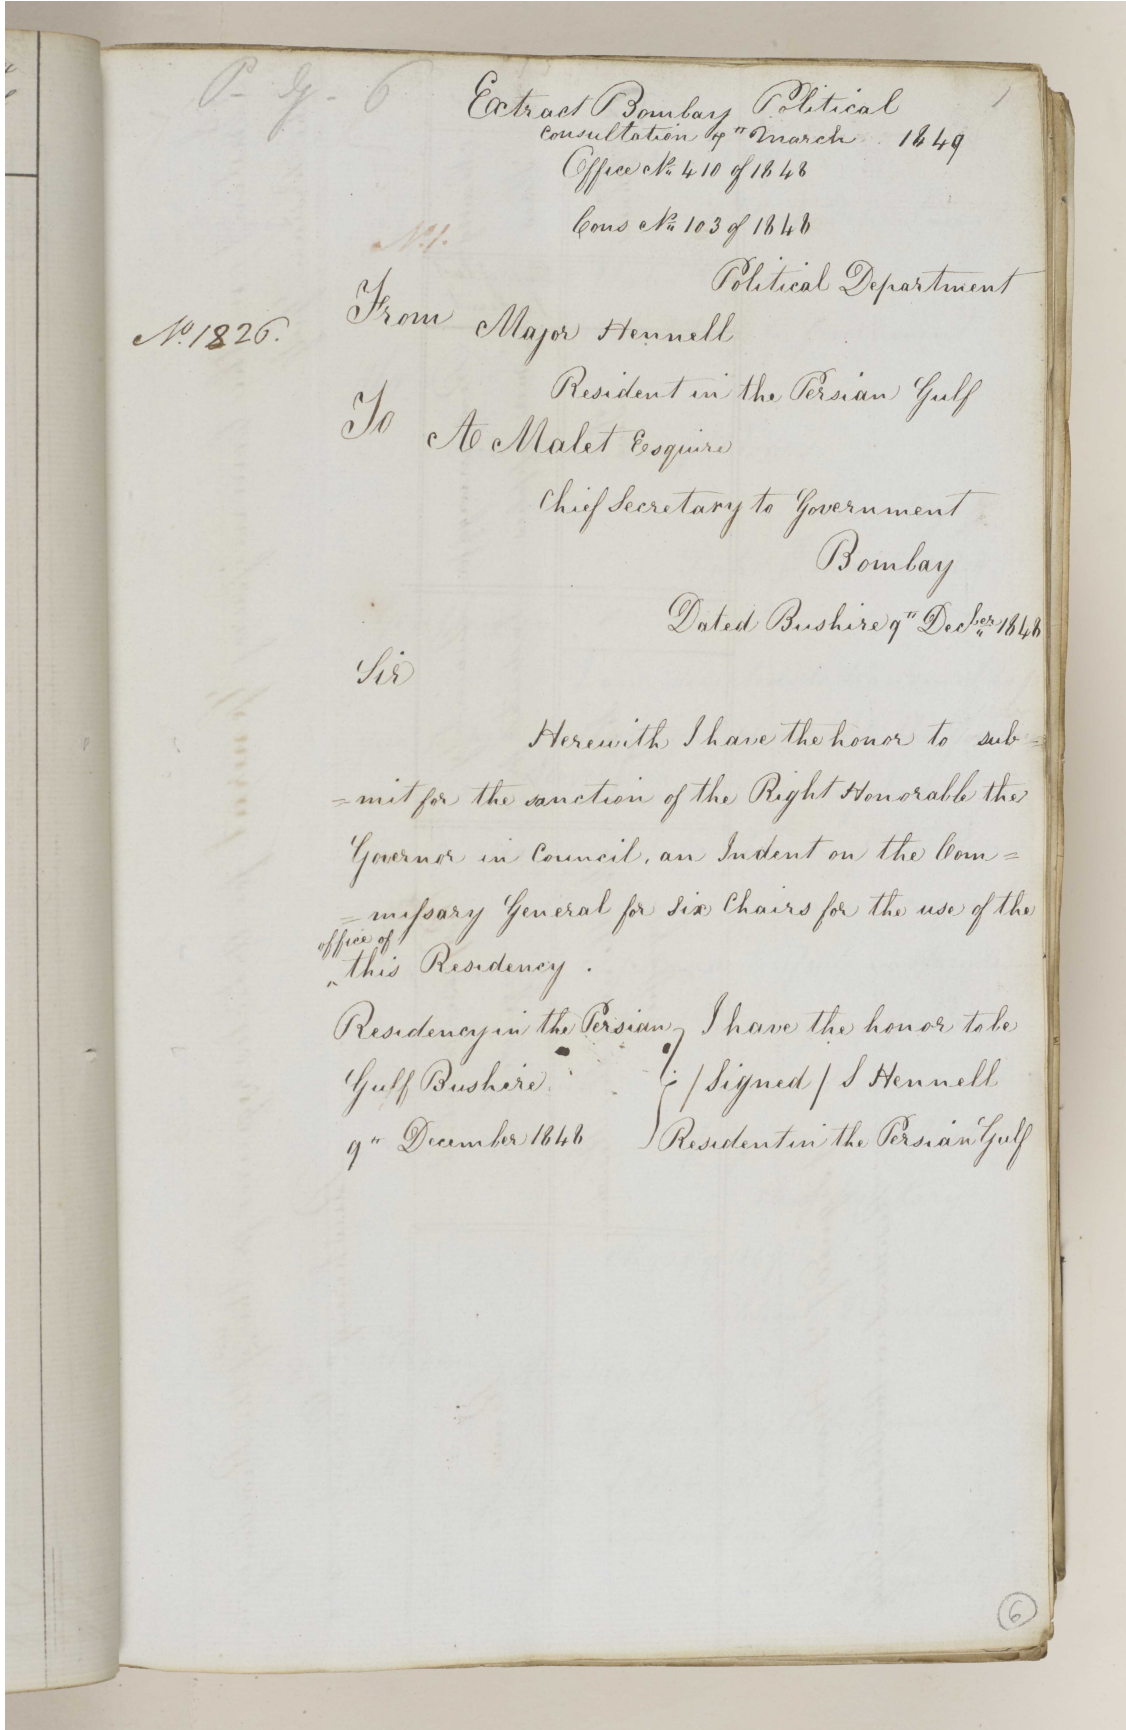 P- 6
1
Extract Bombay Political
Consultation 7" March 1849
Office No. 410 of 1848
Cons No. 103 of 1848
No. 1.
Political Department
From
No. 1826.
Major Hennell
Resident in the Persian Gulf
To
A Malet Esquire
Chief Secretary to Government
Bombay
Dated Bushire 9" Decber 1848
Sir
Herewith I have the honor to sub=
=mit for the sanction of the Right Honorable the
Governor in Council, an Indent on the Com=
=missary General for Six Chairs for the use of the
office of
^ this Residency.
Residency in the Persian } I have the honor to be
Gulf Bushire } /Signed/ S Hennell
9" December 1848 } Resident in the Persian Gulf
6